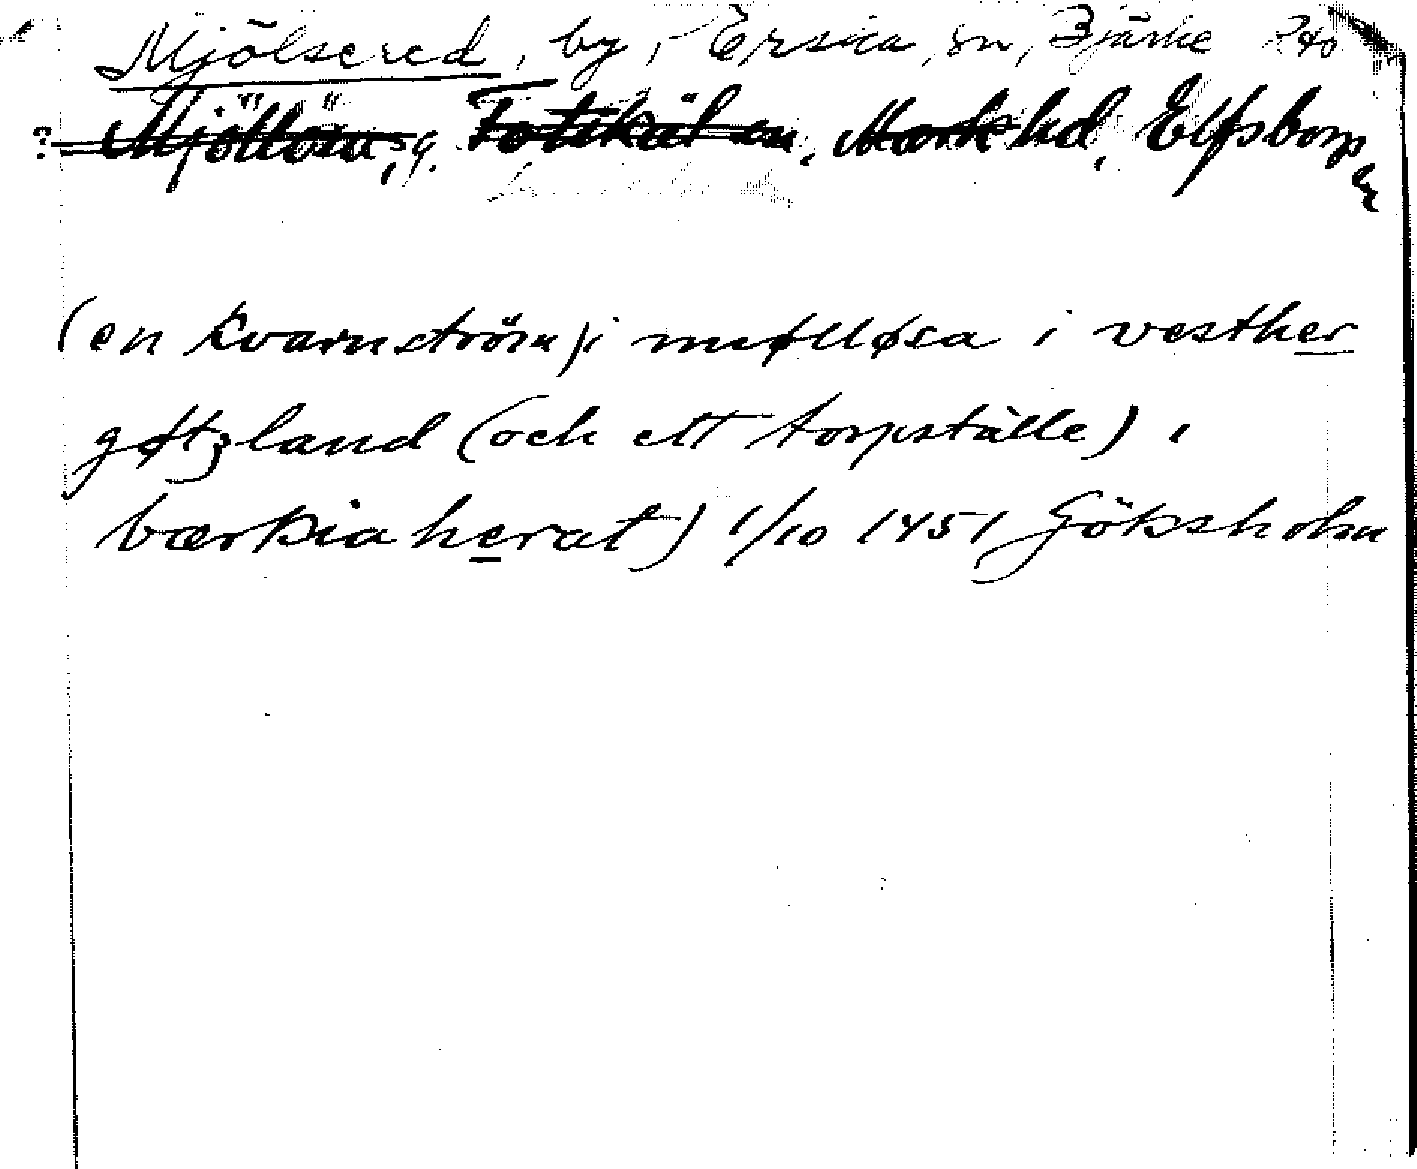 Mjölsered, by, Erska, sn, Bjärke hd
? Mjöllösa, g. Fotskäl sn, Marks hd, Elfsborgs
län
(en kvarnström) i møllløsa i vesther
gøtzland (och ett torpställe) i
bærkiaherat) 1/10 1451 Göksholm